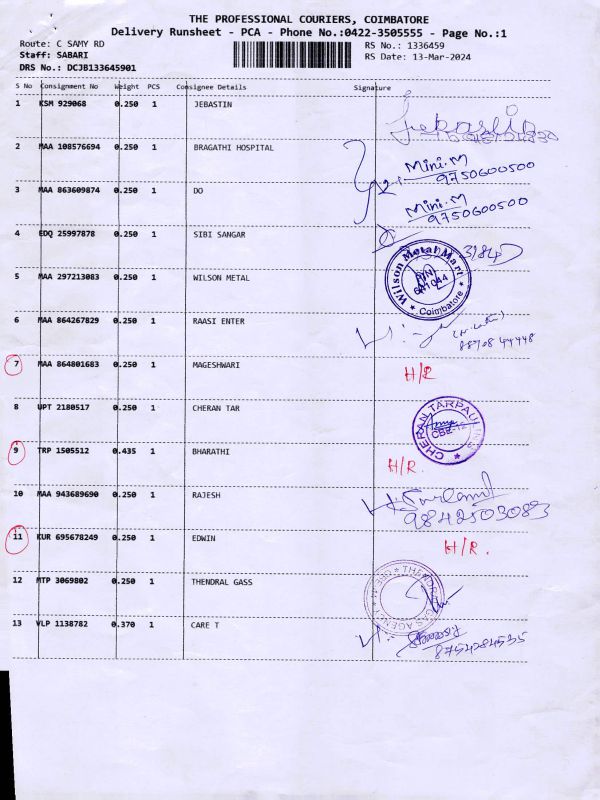 THE PROFESSIONAL COURIERS, COIMBATORE
Delivery Runsheet - PCA - Phone No.:0422-3505555 - Page No.:1
Route: C SAMY RD RS No.: 1336459
Staff: SABARI RS Date: 13-Mar-2024
DRS No.: DCJB133645901
S No Consignment No Weight PCS Consignee Details Signature
1 KSM 929068 0.250 1 JEBASTIN
2 MAA 108576694 0.250 1 BRAGATHI HOSPITAL Mini.M
9750600500
3 MAA 863609874 0.250 1 DO Mini.M
9750600500
4 EDQ 25997878 0.250 1 SIBI SANGAR
5 MAA 297213083 0.250 1 WILSON METAL Wilson Metal Mart
Coimbatore
6 MAA 864267829 0.250 1 RAASI ENTER
7 MAA 864801683 0.250 1 MAGESHWARI H/R
8 UPT 2180517 0.250 1 CHERAN TAR CHERAN TARPAULINS
9 TRP 1505512 0.435 1 BHARATHI H/R.
10 MAA 943689690 0.250 1 RAJESH
9842503083
11 KUR 695678249 0.250 1 EDWIN H/R.
12 MTP 3069802 0.250 1 THENDRAL GASS
13 VLP 1138782 0.370 1 CARE T
8754284535